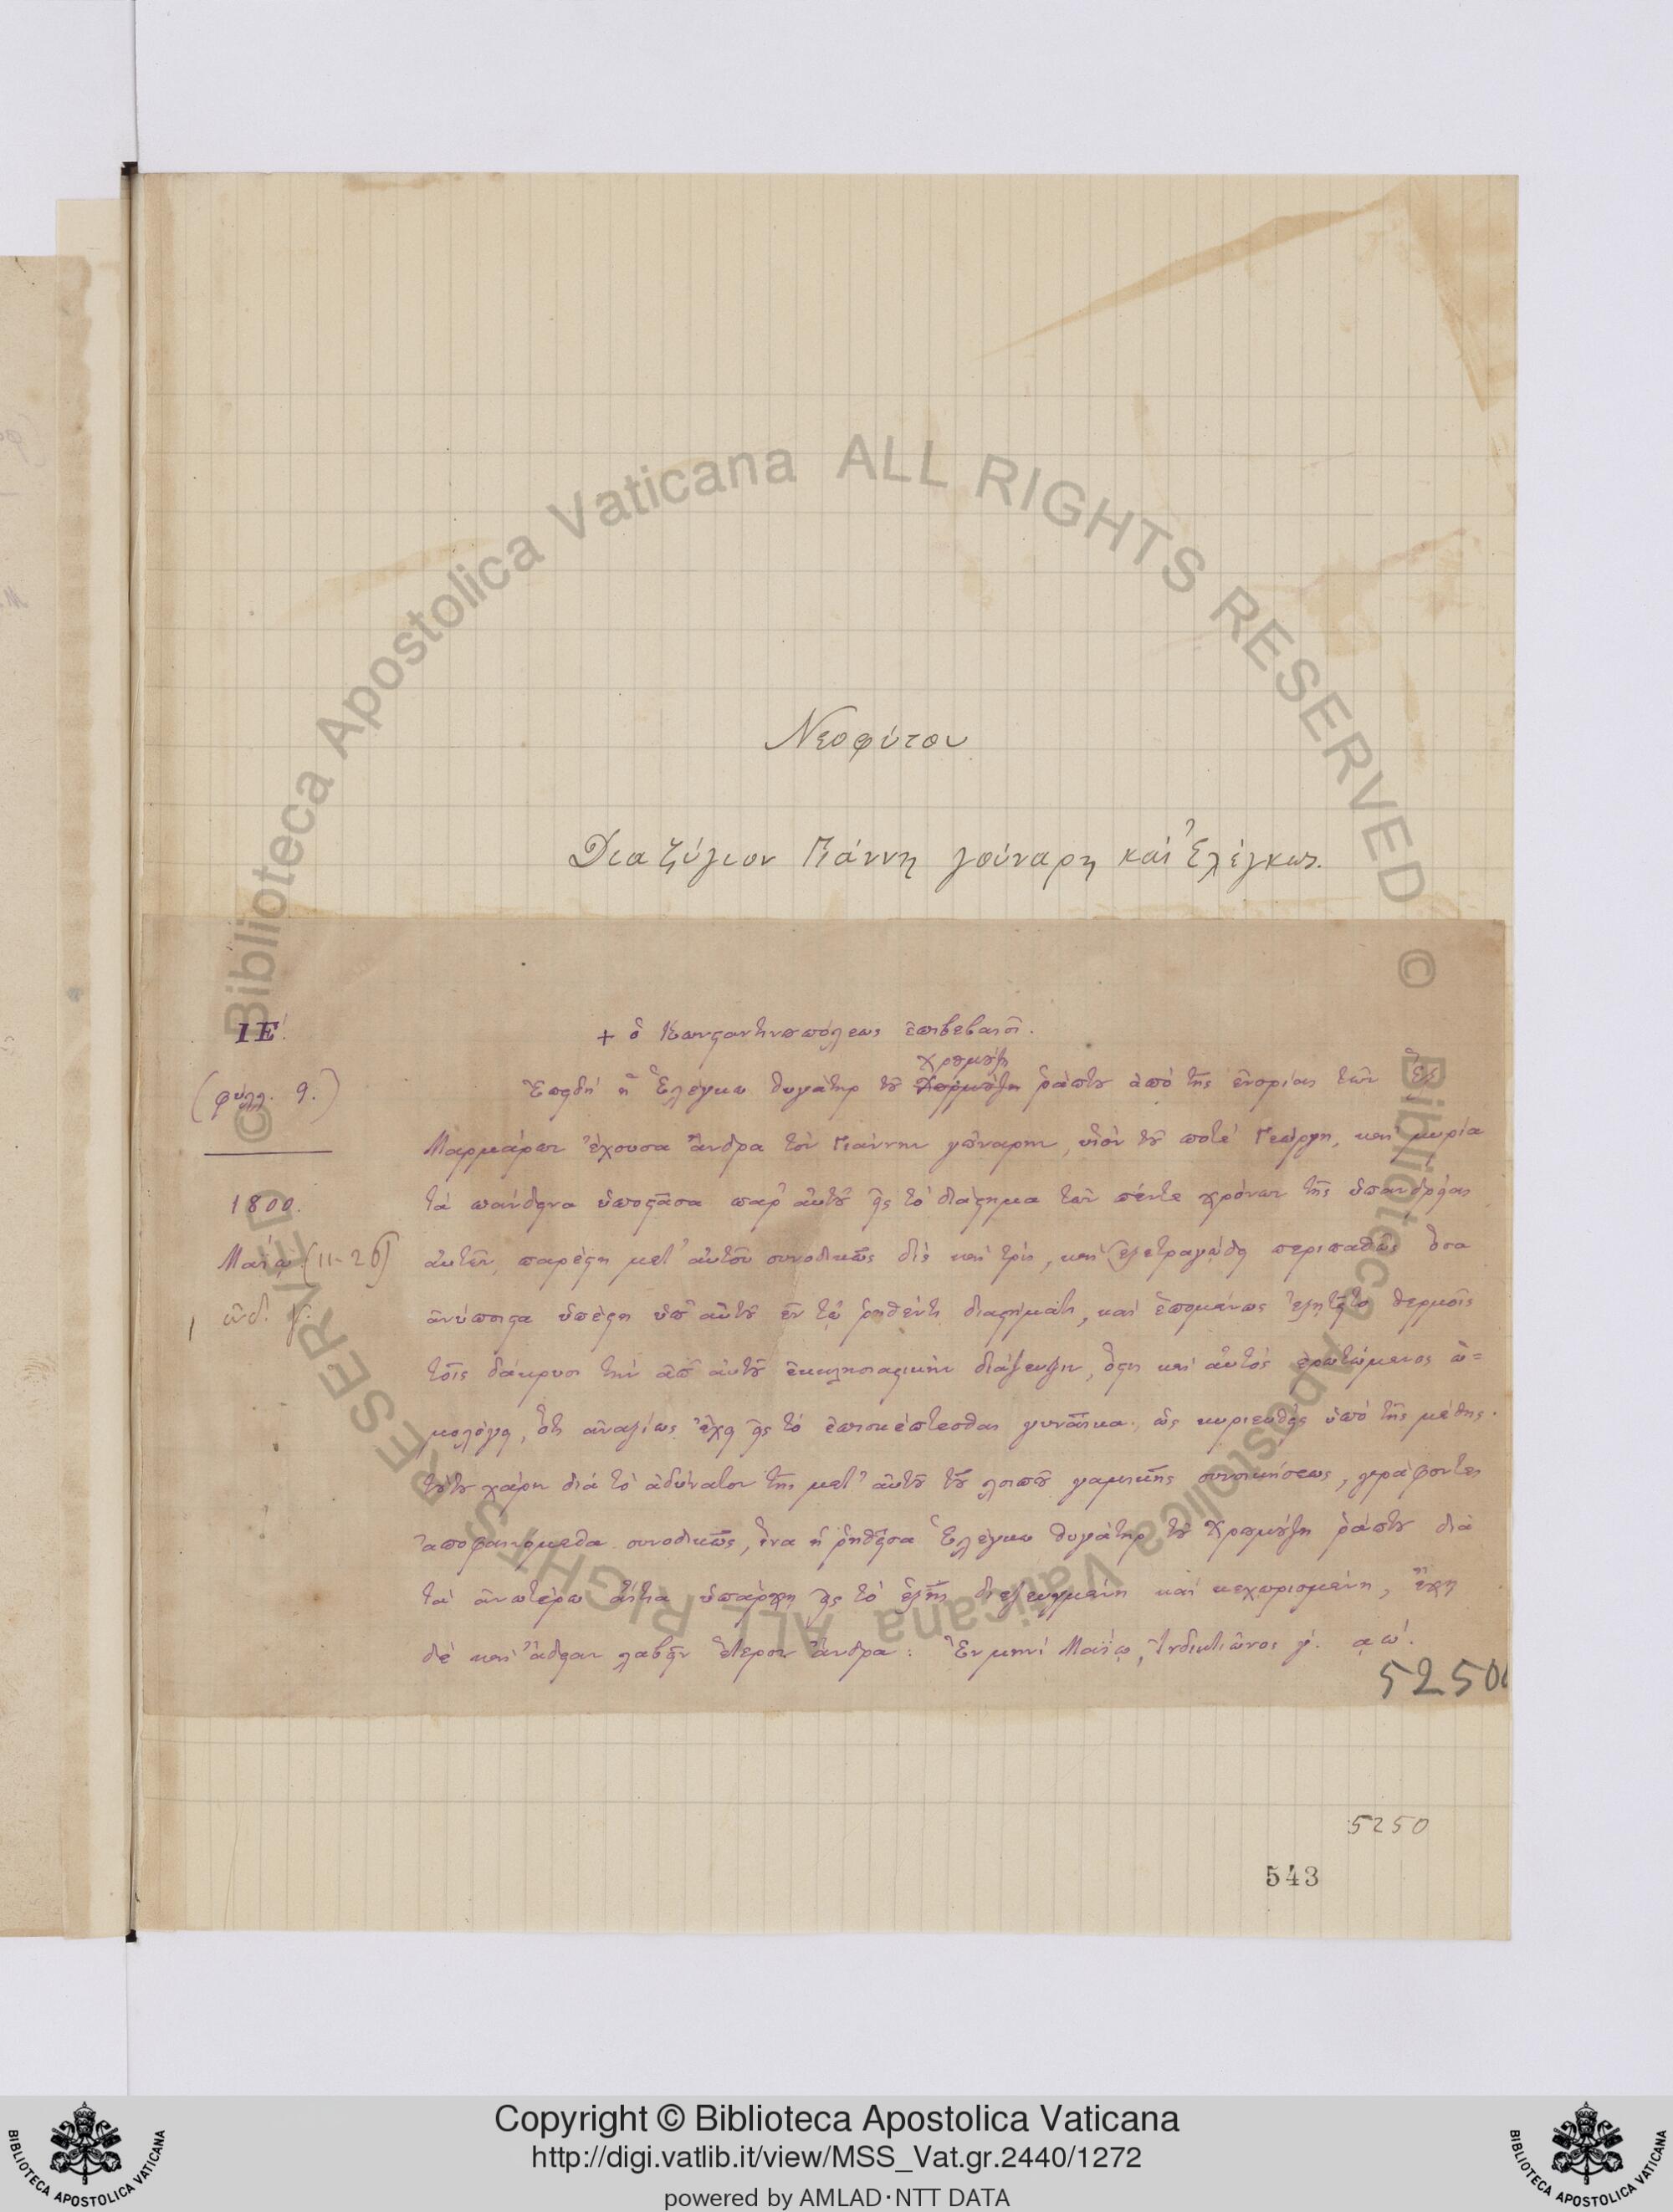 Νεοφύτου
Διαζύγιον Γιάννη γούναρη καὶ Ἑλέγκως.
ΙΕ΄.
(φύλλ. 9.)
1800.
Μαΐῳ (11-26)
ἰνδ. γ΄.
+ ὁ Κωνσταντινουπόλεως ἐπιβεβαιοῖ.
Χρομούζη
Ἐπειδὴ ἡ Ἑλέγκω θυγάτηρ τοῦ ῥάπτου ἀπὸ τῆς ἐνορίας τῶν Ἓξ
Μαρμάρων ἔχουσα ἄνδρα τὸν Γιάννην γούναρην, υἱὸν τοῦ ποτὲ Γεώργη, καὶ μυρία
τὰ πάνδεινα ὑποστᾶσα παρ' αὐτοῦ εἰς τὸ διάστημα τῶν πέντε χρόνων τῆς ὑπανδρείας
αὐτῶν, παρέστη μετ' αὐτοῦ συνοδικῶς δὶς καὶ τρίς, καὶ ἐξετραγῴδει περιπαθῶς ὅσα
ἀνύποιστα ὑπέστη ὑπ' αὐτοῦ ἐν τῷ ῥηθέντι διαστήματι, καὶ ἑπομένως ἐζητεῖτο θερμοῖς
τοῖς δάκρυσι τὴν ἀπ' αὐτοῦ ἐκκλησιαστικὴν διάζευξιν, ὅστις καὶ αὐτὸς ἐρωτώμενος ὡ=
μολόγει, ὅτι ἀναξίως ἔχει εἰς τὸ ἐπισκέπτεσθαι γυναῖκα, ὡς κυριευθεὶς ὑπὸ τῆς μέθης.
τούτου χάριν διὰ τὸ ἀδύνατον τῆς μετ' αὐτοῦ τοῦ λοιποῦ γαμικῆς συνοικήσεως, γράφοντες
ἀποφαινόμεθα συνοδικῶς, ἵνα ἡ ῥηθεῖσα Ἑλέγκω θυγάτηρ τοῦ Χρομούζη ῥάπτου διὰ
τὰ ἀνωτέρω αἴτια ὑπάρχῃ εἰς τὸ ἑξῆς διεζευγμένη καὶ κεχωρισμένη, ἔχῃ
δὲ καὶ ἄδειαν λαβεῖν ἕτερον ἄνδρα: Ἐν μηνὶ Μαΐῳ, Ἰνδικτιῶνος γ΄. αω΄.
5250
5250
543
© Biblioteca Apostolica Vaticana ALL RIGHTS RESERVED
© Biblioteca Apostolica Vaticana ALL RIGHTS RESERVED
Copyright © Biblioteca Apostolica Vaticana
http://digi.vatlib.it/view/MSS_Vat.gr.2440/1272
powered by AMLAD·NTT DATA
BIBLIOTECA APOSTOLICA VATICANA
BIBLIOTECA APOSTOLICA VATICANA